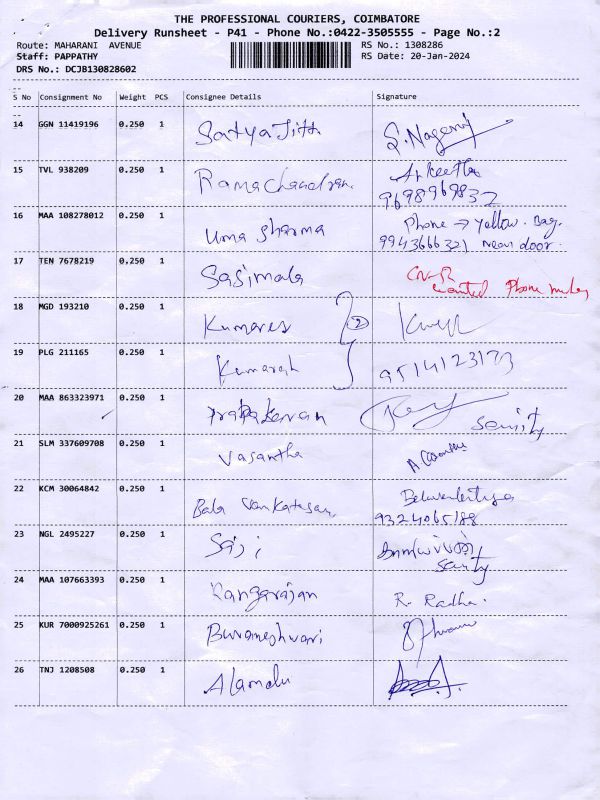 THE PROFESSIONAL COURIERS, COIMBATORE
Delivery Runsheet - P41 - Phone No.:0422-3505555 - Page No.:2
Route: MAHARANI AVENUE RS No.: 1308286
Staff: PAPPATHY RS Date: 20-Jan-2024
DRS No.: DCJB130828602
S No Consignment No Weight PCS Consignee Details Signature
14 GGN 11419196 0.250 1 Satya Jith
15 TVL 938209 0.250 1 Ramachandran.
9698969832
16 MAA 108278012 0.250 1 Uma Sharma Phone → Yellow. Bag.
9943666321 near door.
17 TEN 7678219 0.250 1 Sasimala
wanted Phone
18 MGD 193210 0.250 1 Kumares 2
19 PLG 211165 0.250 1 Kumarash 9514123173
20 MAA 863323971 0.250 1
21 SLM 337609708 0.250 1 Vasantha
22 KCM 30064842 0.250 1 Bala Vankatesan.
9324065188
23 NGL 2495227 0.250 1
24 MAA 107663393 0.250 1 Rangarajan R. Radha.
25 KUR 7000925261 0.250 1 Buvameshwari
26 TNJ 1208508 0.250 1 Alamelu